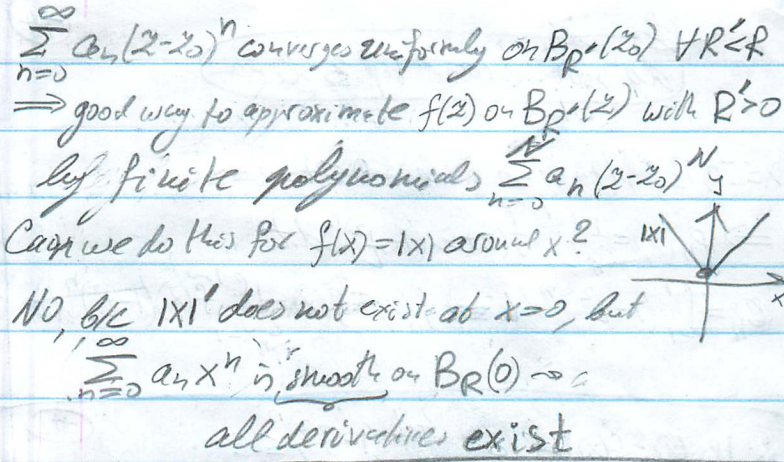 ∞
∑ aₙ(z-z₀)ⁿ converges uniformly on B_R'(z₀) ∀R'<R
n=0
⟹ good way to approximate f(z) on B_R'(z) with R'>0
by finite polynomials ∑_{n=0}^{N} aₙ(z-z₀)^N y
Can we do this for f(x)=|x| around x? |x|
x
NO, b/c |x|' does not exist at x=0, but
∞
∑ aₙxⁿ is smooth on B_R(0) ⇝
n=0
all derivatives exist